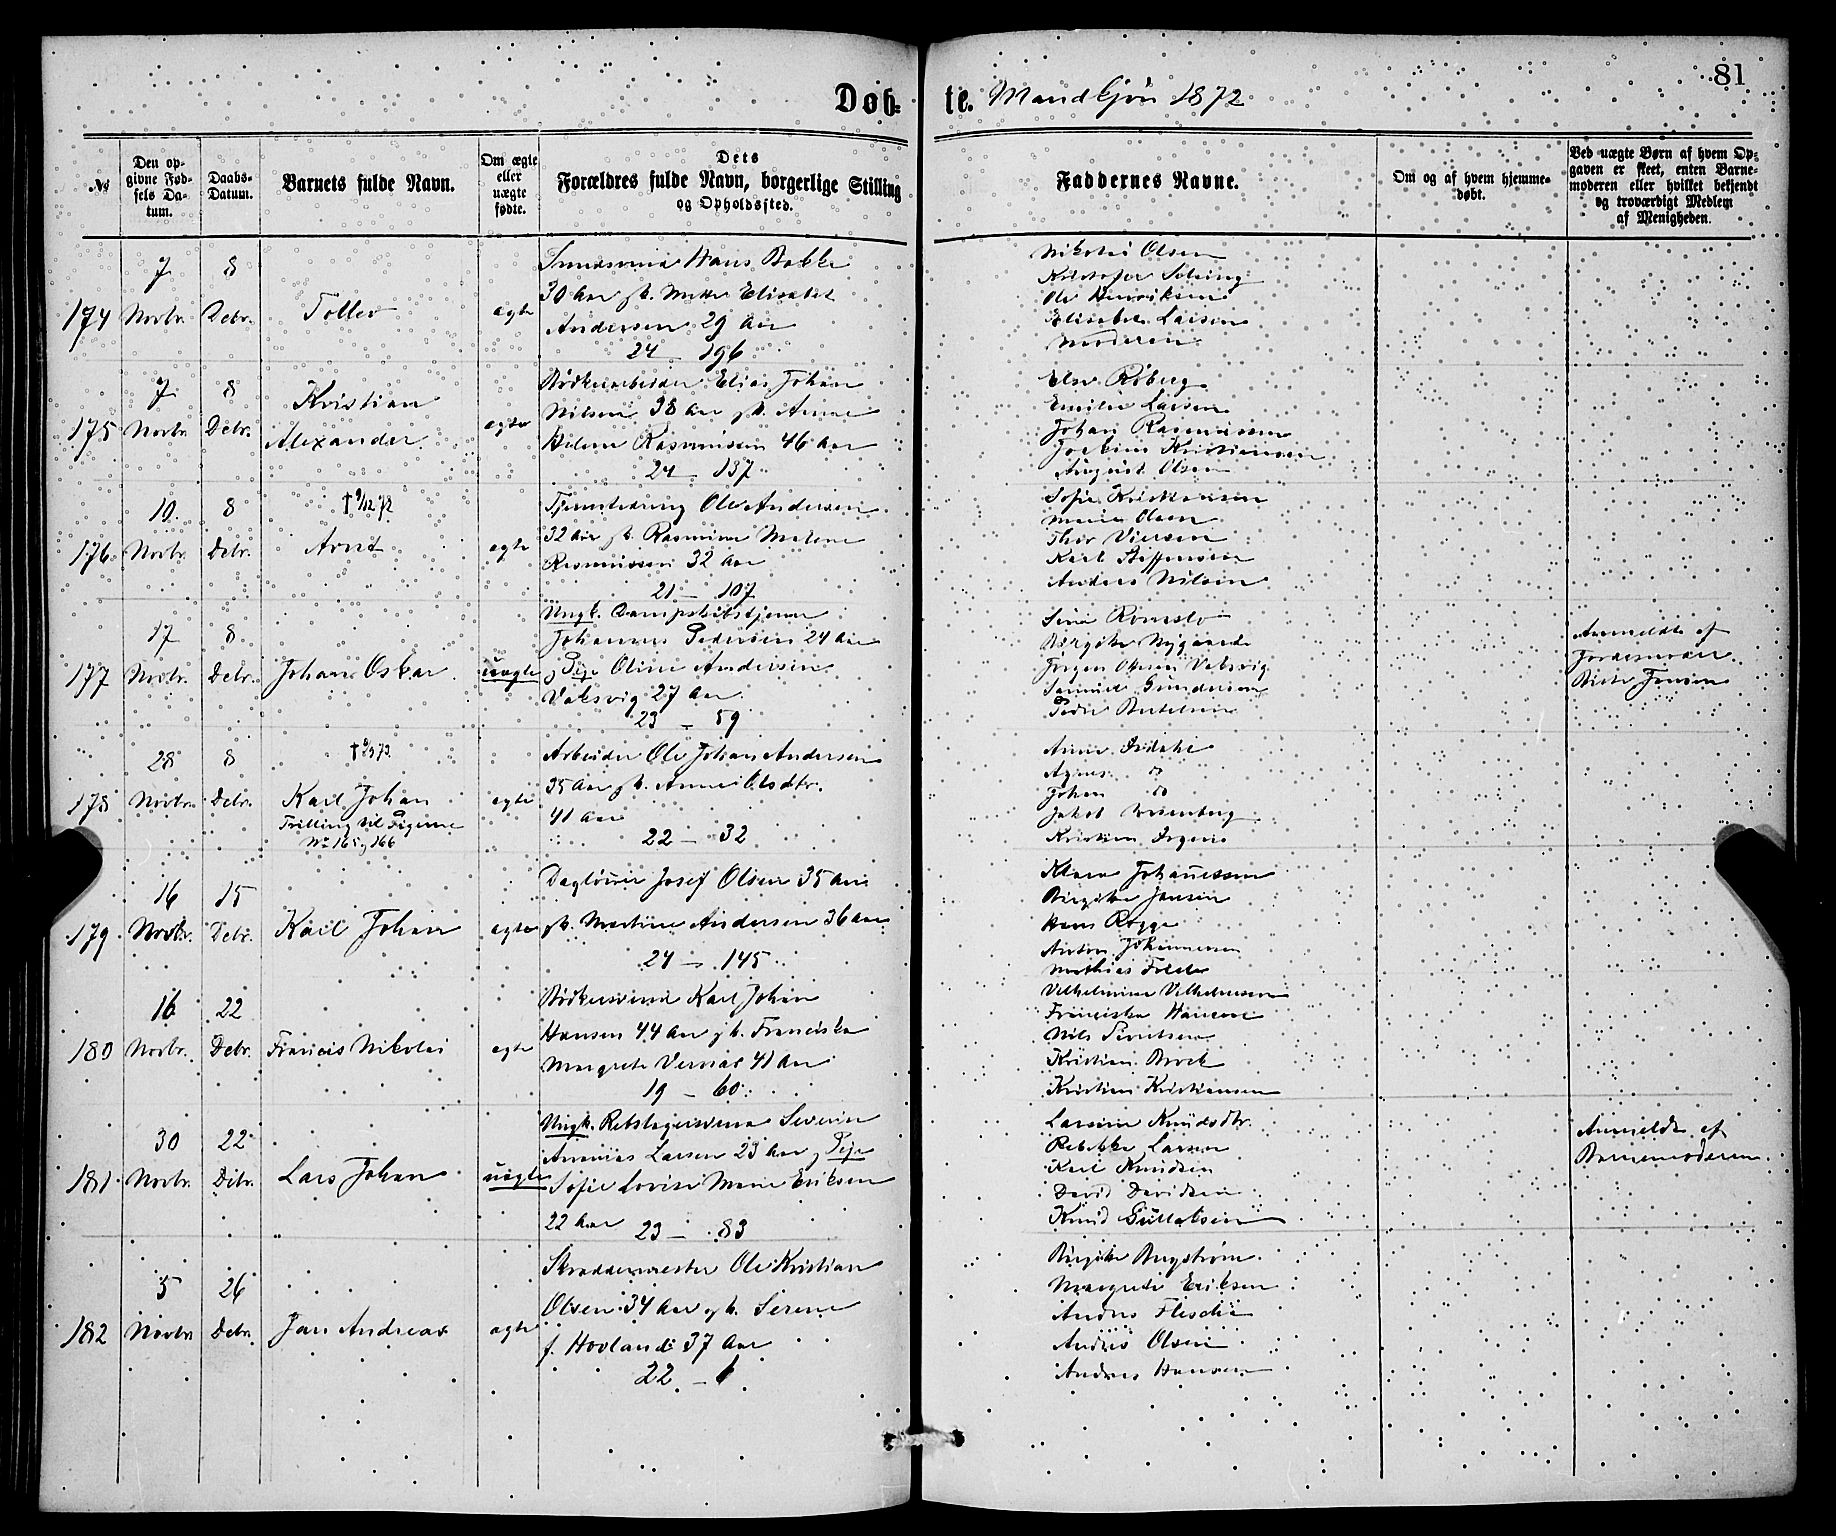 81
Døb- te. Mandkjøn 1872
№
Den opgivne Fødsels Datum.
Daabs-Datum.
Barnets fulde Navn.
Om ægte eller uægte fødte.
Dets Forældres fulde Navn, borgerlige Stilling og Opholdssted.
Faddernes Navne.
Om og af hvem hjemmedøbt.
Ved uægte Børn af hvem Opgaven er skeet, enten Barnemoderen eller hvilket bekjendt og troværdigt Medlem af Menigheden.
174
7 Novbr.
8 Debr.
Tollev
ægte
Hans Bakke
30 Aar
Elisabet
Andersen 29 Aar
24 - 196
Nikolai Olsen
Ole Henriksen
Elisabet Larsen
Moderen
175
7 Novbr.
8 Debr.
Kristian
Alexander
ægte
Bødkerarbeider Elias Johan
Nilsen 38 Aar gh. Anne
Helene Rasmussen 46 Aar
24 - 137
Emilie Larsen
Johan Rasmussen
Joakim Kristiansen
August Olsen
176
10 Novbr.
8 Debr.
† 9/12 72
Arnt
ægte
Ole Andersen
32 Aar gh. Rasmine Malene
Rasmussen 32 Aar
21 - 107
Sofie Kristensen
Marie Olsen
Karl Steffensen
Anders Nilsen
177
17 Novbr.
8 Debr.
Johan Oskar
uægte
Ungk.
Johannes Pedersen 24 Aar
g Pige Oline Andersen
Vaksvig 27 Aar
23 - 59
Sina Romslo
Birgitte Nygaard
Jørgen Olsen Vaksvig
Samuel Gundersen
Peder Bertelsen
Anmeldt af
Jordemoder
Jensen
178
28 Novbr.
8 Debr.
Karl Johan
Trilling til Pigerne
No 165 g 166
ægte
Arbeider Ole Johan Andersen
35 Aar gh. Anne Olsdtr.
41 Aar
22 - 32
Agnes do
Johan do
Jakob Rosenberg
179
16 Novbr.
15 Debr.
Karl Johan
ægte
Dagløner Josef Olsen 35 Aar
gh. Martine Andersen 36 Aar
24 - 145
Klara Johannessen
Birgitte Jensen
Hans Rogge
Anton Johannessen
180
16 Novbr.
22 Debr.
Francis Nikolai
ægte
Bødkersvend Karl Johan
Hansen 44 Aar gh. Franciska
Margrete 41 Aar
19 - 60
Vilhelmine Vilhelmsen
Franciska Hansen
Nils Sivertsen
Kristian Brock
Kristian Kristiansen
181
30 Novbr.
22 Debr.
Lars Johan
uægte
Ungk. Rebslagersvend Severin
Ananias Larsen 23 Aar g Pige
Sofie Lovise Marie Eriksen
22 Aar 23 - 83
Larsine Knudsdtr.
Rebekka Larsen
Karl Knudsen
David Davidsen
Knud Gullaksen
Anmeldt af
Barnemoderen.
182
5 Novbr
26 Debr.
Jan Andreas
ægte
Skræddermester Ole Kristian
Olsen 34 Aar gh. Serene
f. Hovland 37 Aar
22 - 1
Birgitte Bergstrøm
Margrete Eriksen
Andres Olsen
Andres Hansen